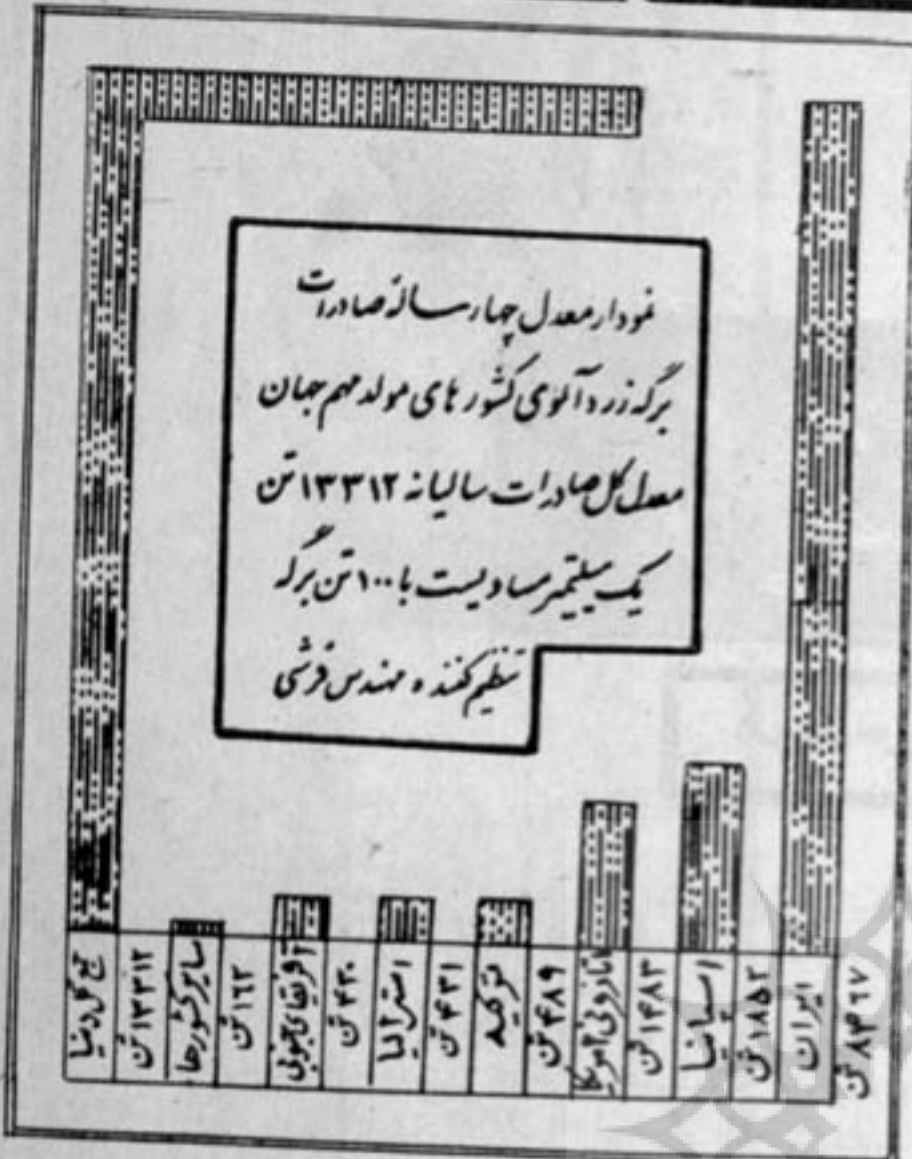 نمودار معدل چهار ساله صادرات
برگه زردآلوی کشورهای مولد مهم جهان
معدل کل صادرات سالیانه ۱۳۳۱۲ تن
یک میلیمتر مساویست با ۱۰۰ تن برگه
تنظیم کننده مهندس قرشی
ایران
۸۴۶۷ تن
اسپانیا
۱۸۵۲ تن
اتازونی آمریکا
۱۴۸۳ تن
ترکیه
۴۸۹ تن
استرالیا
۴۳۱ تن
آفریقای جنوبی
۴۳۰ تن
سایر کشورها
۱۶۲ تن
جمع کل دنیا
۱۳۳۱۲ تن